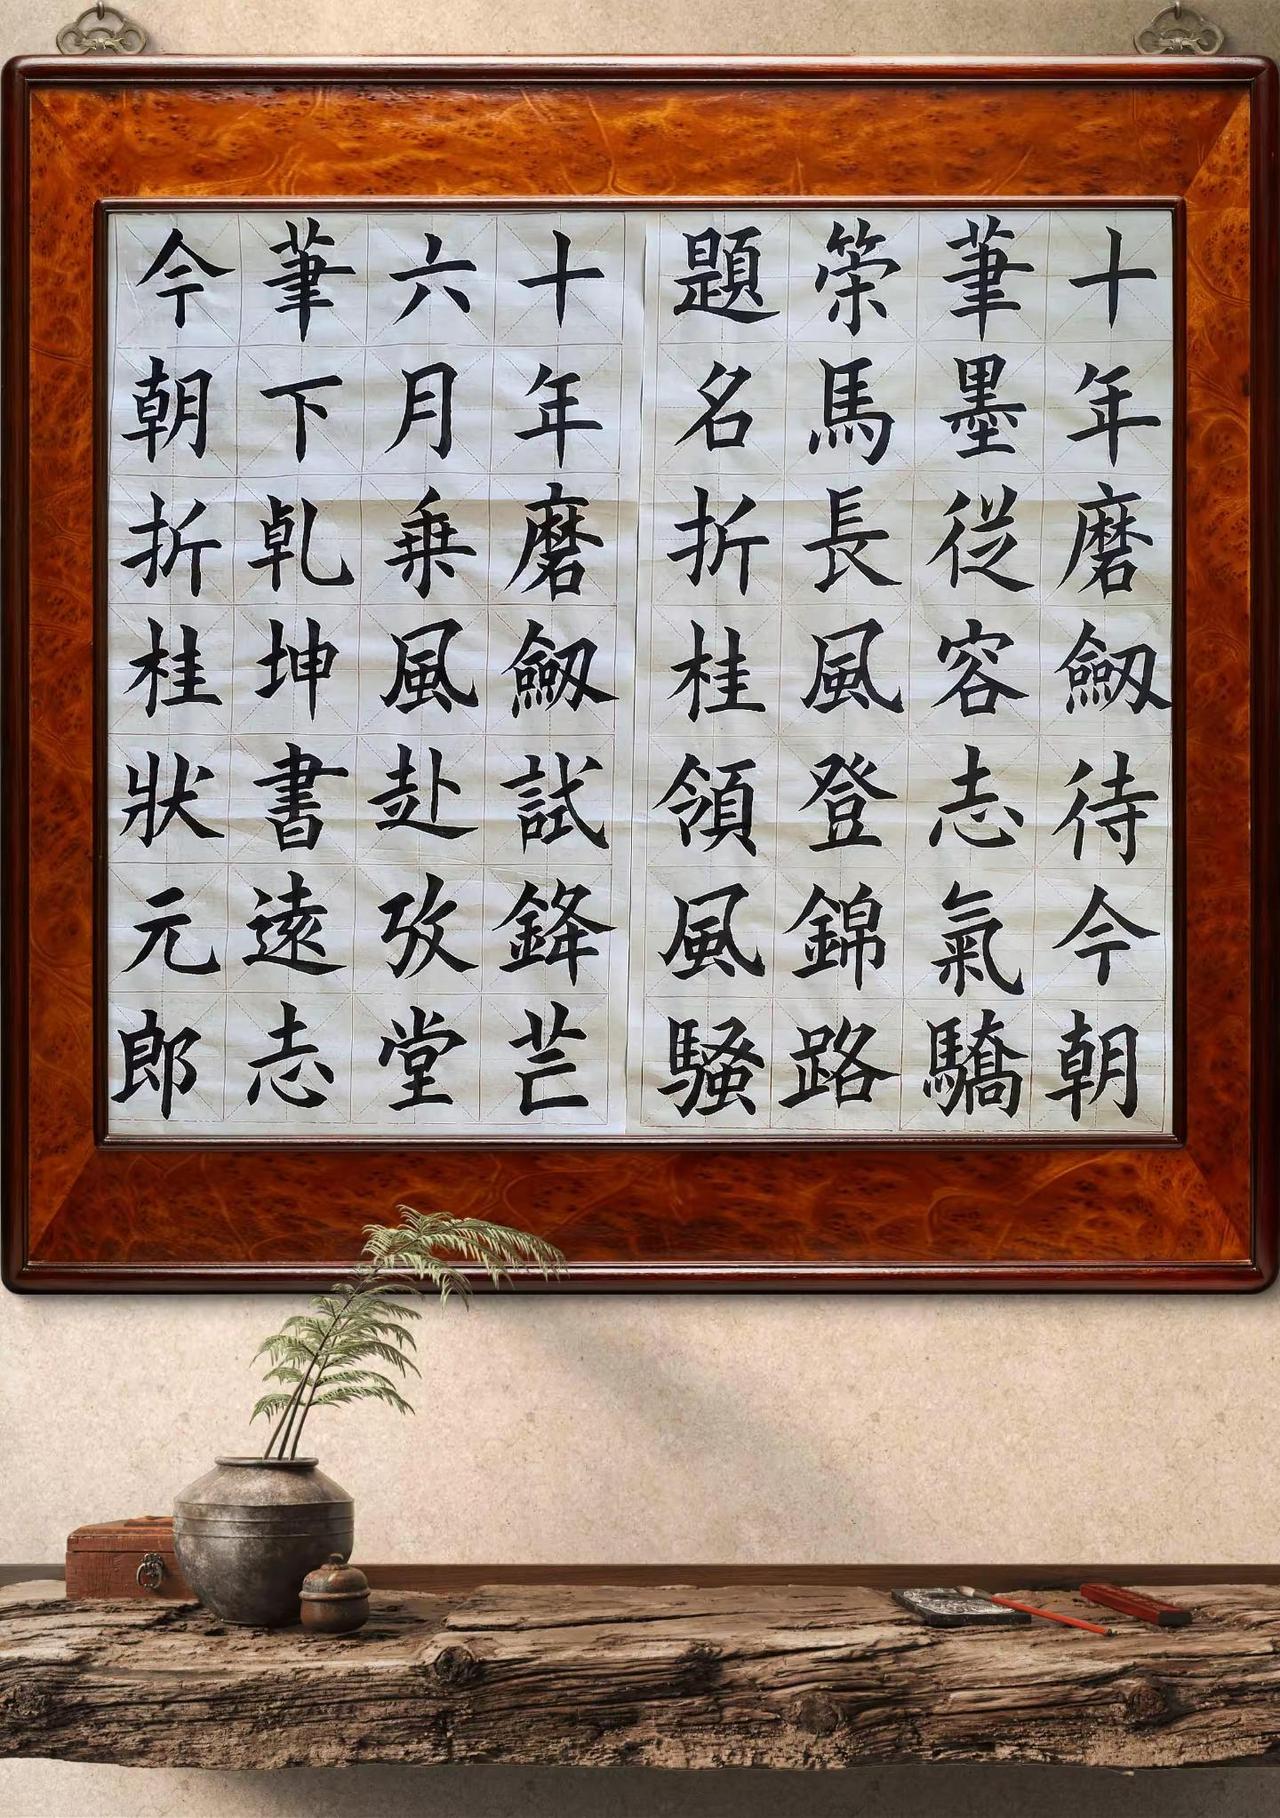 十年磨劒待今朝
筆墨從容志氣驕
策馬長風登錦路
題名折桂領風騷
十年磨劒試鋒芒
六月乗風赴攷堂
筆下乹坤書遠志
今朝折桂狀元郎